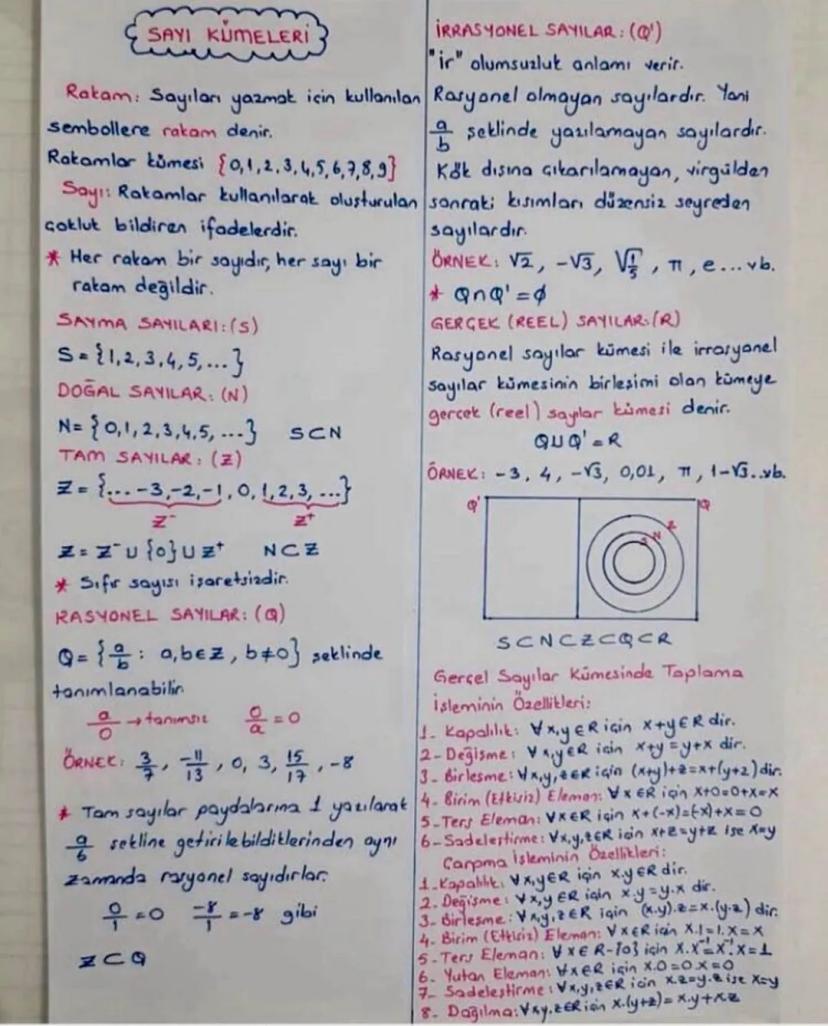 SAYI KÜMELERİ
Rakam: Sayıları yazmak için kullanılan
sembollere rakam denir.
Rakamlar kümesi {0,1,2,3,4,5,6,7,8,9}
Sayı: Rakamlar kullanılarak oluşturulan
çokluk bildiren ifadelerdir.
* Her rakam bir sayıdır, her sayı bir
rakam değildir.
SAYMA SAYILARI: (S)
S = {1,2,3,4,5,...}
DOĞAL SAYILAR: (N)
N = {0,1,2,3,4,5,...} S⊂N
TAM SAYILAR: (Z)
Z = {...-3,-2,-1,0,1,2,3,...}
Z⁻ Z⁺
Z = Z⁻ ∪ {0} ∪ Z⁺ N⊂Z
* Sıfır sayısı işaretsizdir.
RASYONEL SAYILAR: (Q)
Q = {a/b : a,b∈Z, b≠0} şeklinde
tanımlanabilir.
a/0 → tanımsız 0/a = 0
ÖRNEK: 3/7, -11/13, 0, 3, 15/17, -8
* Tam sayılar paydalarına 1 yazılarak
a/b şekline getirilebildiklerinden aynı
zamanda rasyonel sayıdırlar.
0/1 = 0 -8/1 = -8 gibi
Z⊂Q
İRRASYONEL SAYILAR: (Q')
"ir" olumsuzluk anlamı verir.
Rasyonel olmayan sayılardır. Yani
a/b şeklinde yazılamayan sayılardır.
Kök dışına çıkarılamayan, virgülden
sonraki kısımları düzensiz seyreden
sayılardır.
ÖRNEK: √2, -√3, √(1/5), π, e... vb.
* Q∩Q' = ∅
GERÇEK (REEL) SAYILAR: (R)
Rasyonel sayılar kümesi ile irrasyonel
sayılar kümesinin birleşimi olan kümeye
gerçek (reel) sayılar kümesi denir.
Q∪Q' = R
ÖRNEK: -3, 4, -√3, 0,01, π, 1-√3..vb.
Q' Q
S N Z
S⊂N⊂Z⊂Q⊂R
Gerçel Sayılar Kümesinde Toplama
İşleminin Özellikleri:
1- Kapalılık: ∀x,y∈R için x+y∈R dir.
2- Değişme: ∀x,y∈R için x+y=y+x dir.
3- Birleşme: ∀x,y,z∈R için (x+y)+z=x+(y+z) dir.
4. Birim (Etkisiz) Eleman: ∀x∈R için x+0=0+x=x
5-Ters Eleman: ∀x∈R için x+(-x)=(-x)+x=0
6-Sadeleştirme: ∀x,y,z∈R için x+z=y+z ise x=y
Çarpma İşleminin Özellikleri:
1.Kapalılık: ∀x,y∈R için x.y∈R dir.
2. Değişme: ∀x,y∈R için x.y=y.x dir.
3- Birleşme: ∀x,y,z∈R için (x.y).z=x.(y.z) dir.
4. Birim (Etkisiz) Eleman: ∀x∈R için x.1=1.x=x
5-Ters Eleman: ∀x∈R-{0} için x.x⁻¹=x⁻¹.x=1
6. Yutan Eleman: ∀x∈R için x.0=0.x=0
7- Sadeleştirme: ∀x,y,z∈R için x.z=y.z ise x=y
8- Dağılma: ∀x,y,z∈R için x.(y+z)=x.y+x.z